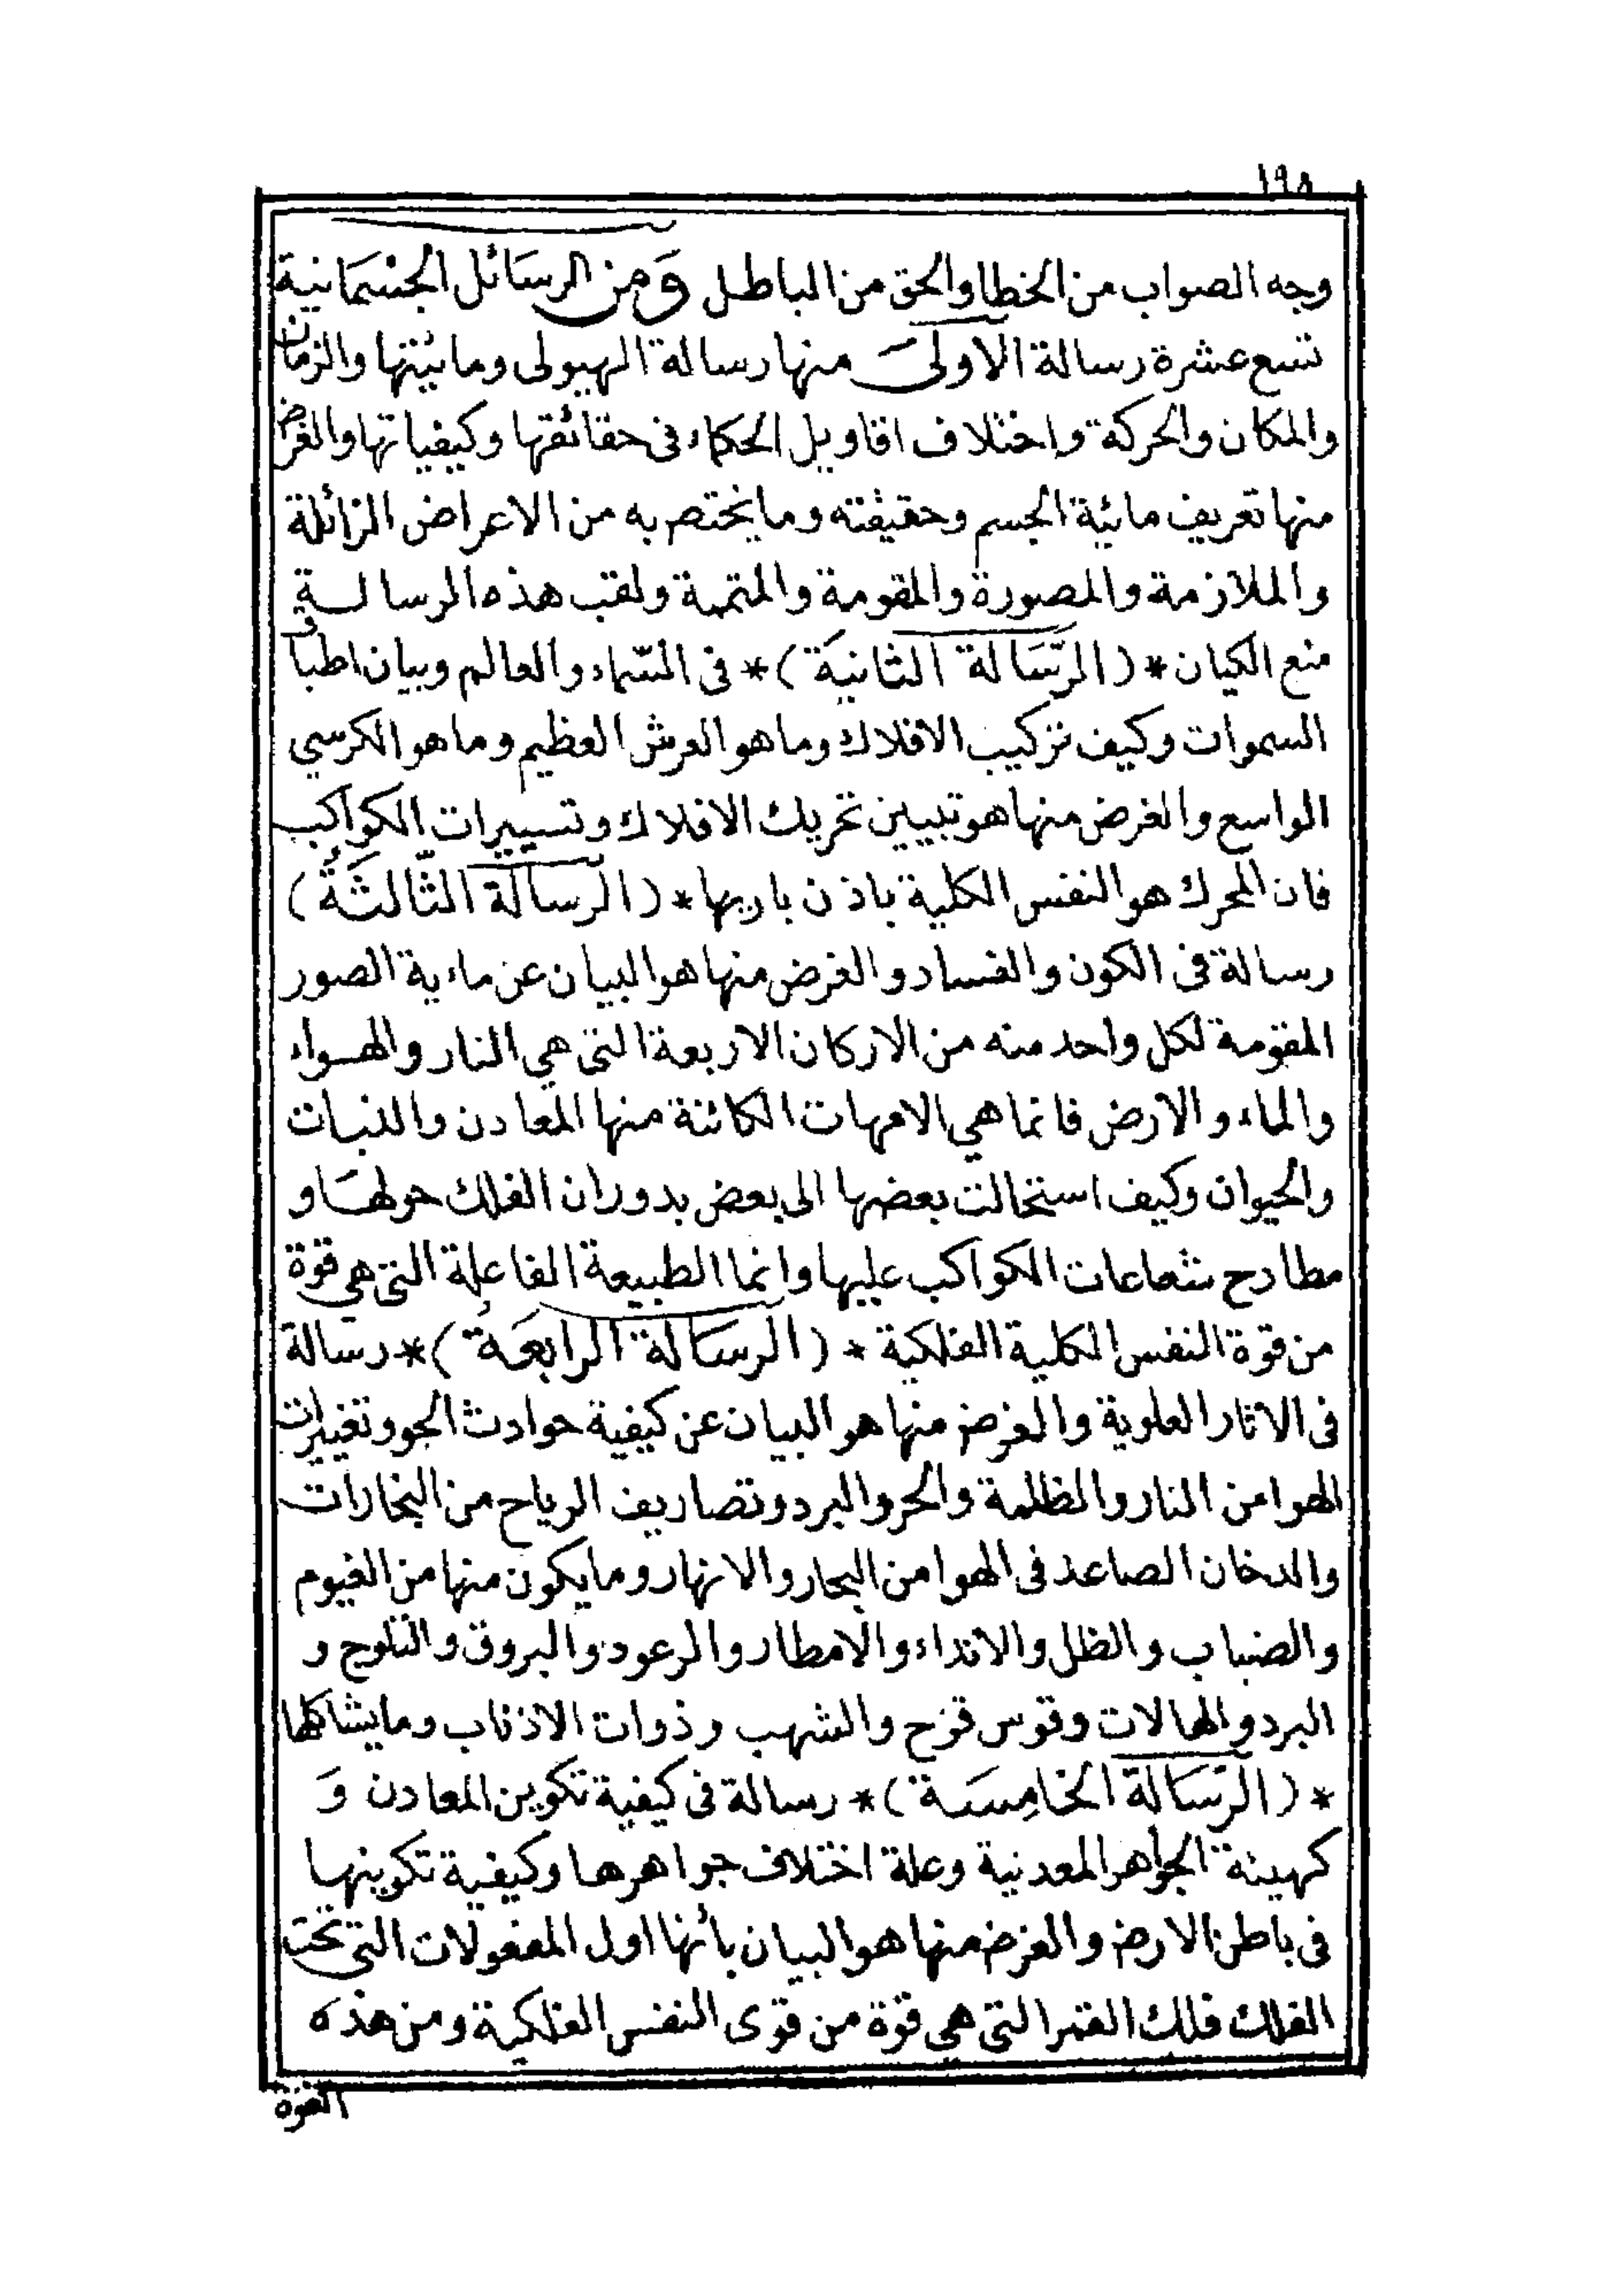 ١٩٨
وجه الصواب من الخطا والحق من الباطل وَمن الرسَائل الجسْمَانية
تسع عشرة رسالة الاولىَ منها رسالة الهيولى ومائيتها والزمان
والمكان والحركة واختلاف اقاويل الحكماء فى حقائقها وكيفياتها والغرض
منها تعريف مائية الجسم وحقيقته وما يختص به من الاعراض الزائلة
والملازمة والمصورة والمقومة والمتممة ولقب هذه الرسالة
منع الكيان * (الرّسَالة الثانيَة) * فى السّماء والعالم وبيان اطباق
السموات وكيف تركيب الافلاك وما هو العرش العظيم وما هو الكرسي
الواسع والغرض منها هو تبيين تحريك الافلاك وتسييرات الكواكب
فان المحرك هو النفس الكلية باذن باريها * (الرسالة الثّالثَةُ)
رسالة فى الكون والفساد والغرض منها هو البيان عن ماءية الصور
المقومة لكل واحد منه من الاركان الاربعة التى هي النار والهواء
والماء والارض فانما هي الامهات الكائنة منها المعادن والنبات
والحيوان وكيف استخالت بعضها الى بعض بدوران الفلك حولهَا و
مطارح شعاعات الكواكب عليها وانما الطبيعة الفاعلة التى هي قوة
من قوة النفس الكلية الفلكية * (الرسَالة الرابعَةُ) * رسالة
فى الاثار العلوية والغرض منها هو البيان عن كيفية حوادث الجو وتغييرات
الهوا من النار والظلمة والحر والبرد وتصاريف الرياح من البخارات
والدخان الصاعد فى الهوا من البحار والانهار وما يكون منها من الغيوم
والضباب والظل والانداء والامطار والرعود والبروق والثلوج و
البرد والهالات وقوس قزح والشهب وذوات الاذناب وما يشاكلها
* (الرّسَالة الخامِسَة) * رسالة فى كيفية تكوين المعادن وَ
كهينة الجواهر المعدنية وعلة اختلاف جواهرها وكيفية تكوينها
فى باطن الارض والغرض منها هو البيان بأنها اول المفعولات التى تحت
الفلك فلك القمر التى هي قوة من قوى النفس الفلكية ومن هذه
القوة